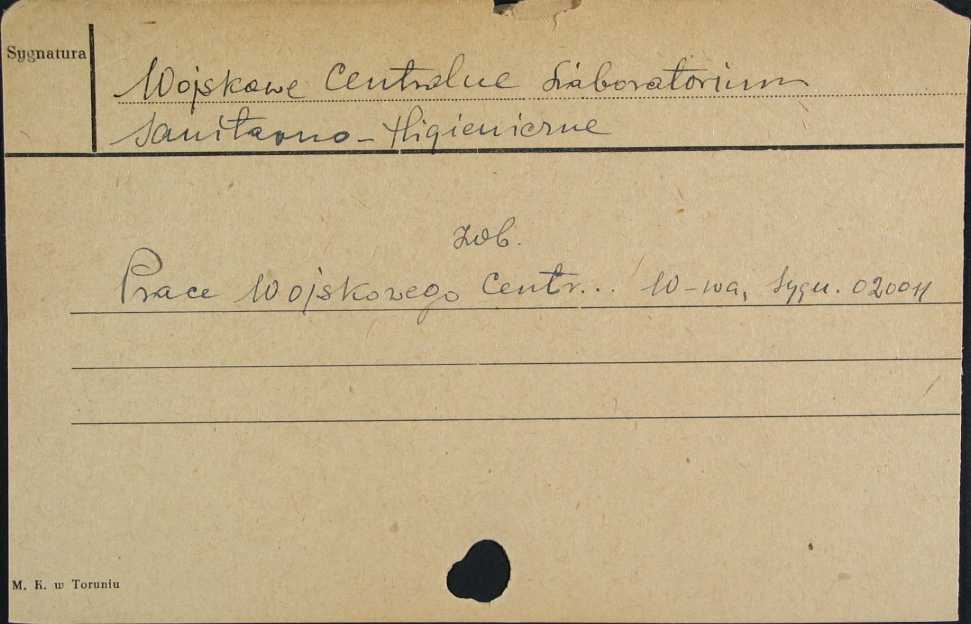 Sygnatura
Wojskowe Centralne Laboratorium
Sanitarno-Higieniczne
zob.
Prace Wojskowego Centr... W-wa, Sygn. 020011
M. K. w Toruniu